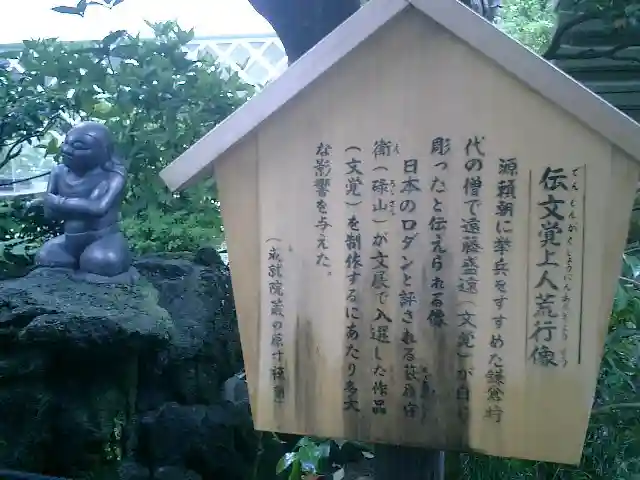 伝文覚上人荒行像
でんもんがくしょうにんあらぎょうぞう
源頼朝に挙兵をすすめた鎌倉時
代の僧で遠藤盛遠(文覚)が自ら
彫ったと伝えられる像
日本のロダンと評される荻原守
衛(碌山)が文展で入選した作品
(文覚)を制作するにあたり多大
な影響を与えた。
(成就院蔵の原寸複製)